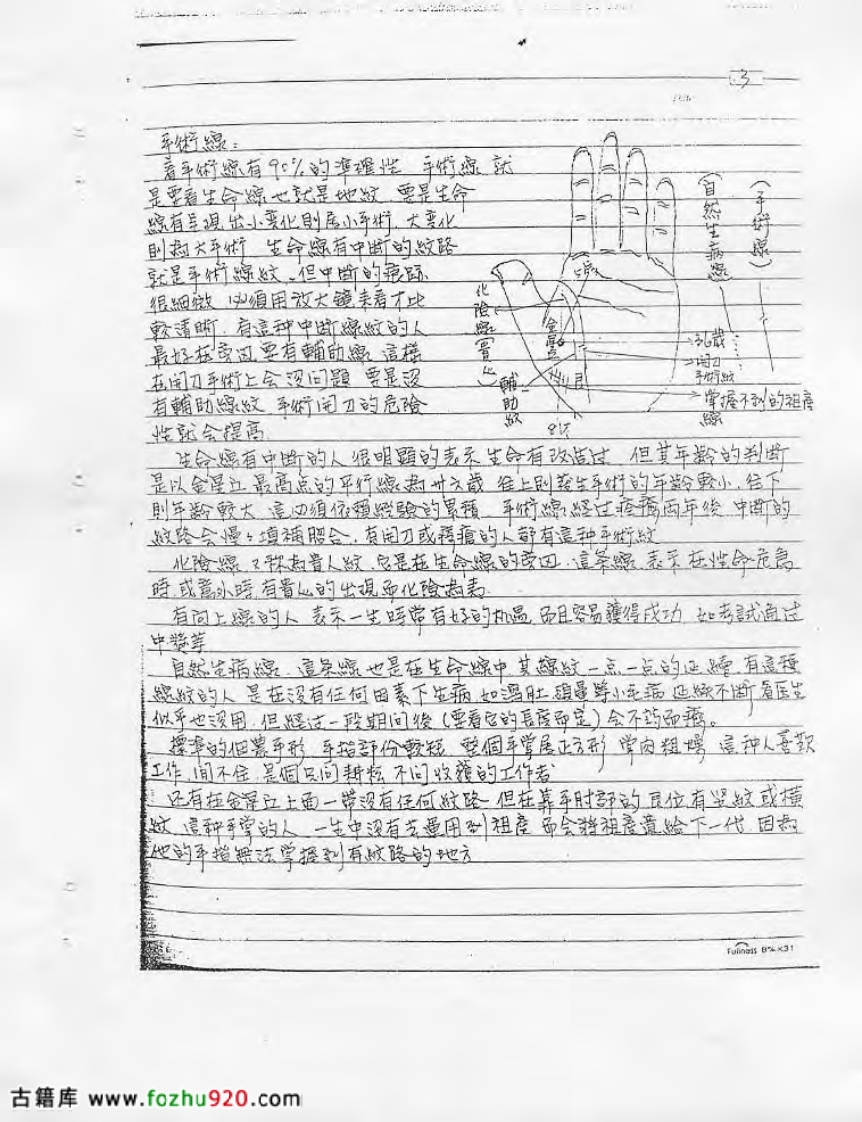 3
手術線：
看手術線有90%的準確性 手術線就
是要看生命線也就是地紋 要是生命
線有呈現出小变化則居小手術 大变化
則為大手術 生命線有中断的紋路
就是手術線紋 但中断的痕跡
很細微 必須用放大鏡來看才比
較清晰 有這种中断線紋的人
最好在 要有輔助線 這樣
在開刀手術上会沒问題 要是沒
有輔助線紋 手術開刀的危险
性就会提高
(手術線)
(自然生病線)
化險線
輔助紋
36歲
開刀
手術紋
掌握不到的祖產
線
生命線有中断的人 很明顯的表示生命有改造过 但其年齡的判断
是以金星丘最高点的平行線為卅六歲 往上則發生手術的年齡較小 往下
則年齡較大 這必須依賴經驗的累積 手術線經过痊癒兩年後 中断的
紋路会慢々填補脗合 有開刀或 的人都有這种手術紋
化險線 又称為貴人紋 是在生命線的 這条線 表示在性命危急
時 或意外時 有貴人的出現而化險為夷
有向上線的人 表示一生時常有好的机遇 而且容易獲得成功 如考試通过
中獎等
自然生病線 這条線也是在生命線中 其線紋一点一点的延續 有這種
線紋的人 是在沒有任何因素下生病 如瀉肚 頭暈等小毛病 延綿不断 看医生
似乎也沒用 但經过一段期间後 (要看它的長度而定) 会不药而癒。
標準的個農手形 手指部份較粗 整個手掌居正方形 掌肉粗壯 這种人喜歡
工作 闲不住 是個只问耕耘 不问收獲的工作者
还有在金星丘上面一帶沒有任何紋路 但在靠手肘部的艮位有竖紋或橫
紋 這种手掌的人 一生中沒有去運用到祖產 而会將祖產遺給下一代 因為
他的手指無法掌握到有紋路的地方
Fullness 8¾×31
古籍库 www.fozhu920.com